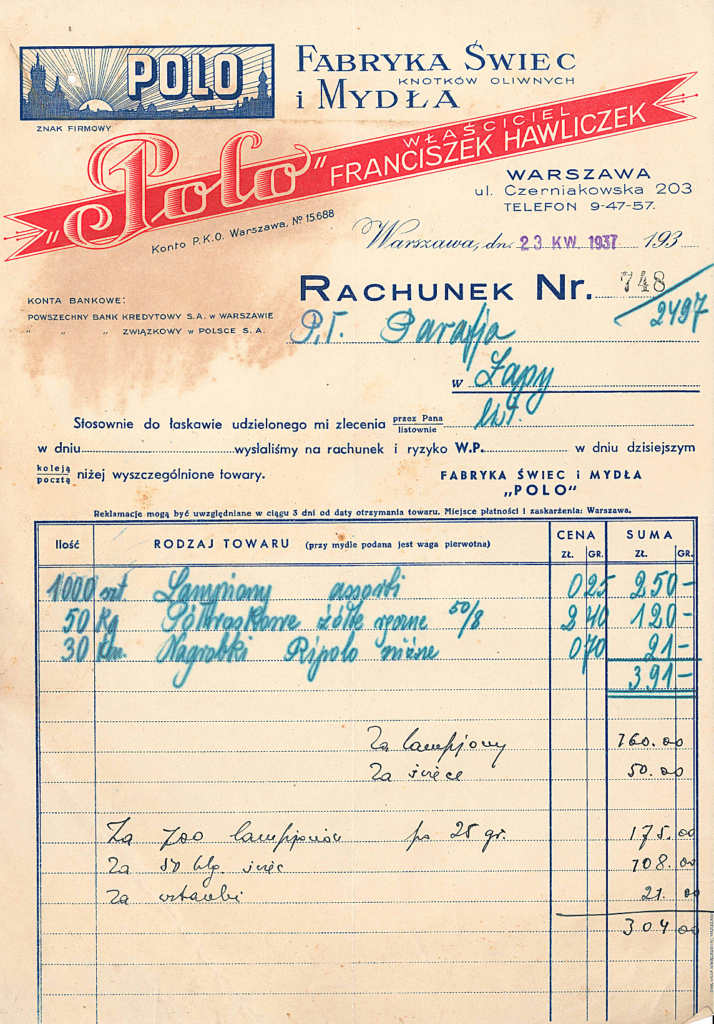 POLO
ZNAK FIRMOWY
FABRYKA ŚWIEC
KNOTKÓW OLIWNYCH
i MYDŁA
WŁAŚCICIEL
„Polo" FRANCISZEK HAWLICZEK
WARSZAWA
ul. Czerniakowska 203
TELEFON 9-47-57.
Konto P.K.O. Warszawa, Nº 15.688
Warszawa, dn. 23 KW. 1937 193
KONTA BANKOWE:
POWSZECHNY BANK KREDYTOWY S.A. w WARSZAWIE
" " " ZWIĄZKOWY w POLSCE S.A.
RACHUNEK Nr. 748
2497
P.T. Parafja
w Łapy
Stosownie do łaskawie udzielonego mi zlecenia przez Pana listownie
w dniu wysłaliśmy na rachunek i ryzyko W.P. w dniu dzisiejszym
koleją pocztą niżej wyszczególnione towary.
FABRYKA ŚWIEC i MYDŁA
„POLO"
Reklamacje mogą być uwzględniane w ciągu 3 dni od daty otrzymania towaru. Miejsce płatności i zaskarżenia: Warszawa.
Ilość RODZAJ TOWARU (przy mydle podana jest waga pierwotna) CENA SUMA
ZŁ. GR. ZŁ. GR.
1000 szt Lampiony assorti 0 25 250 -
50 kg Półtroskowe żółte 50/8 2 40 120 -
30 Nagrobki Ripolo różne 0 70 21 -
391 -
Za lampjony 160.00
Za świece 50.00
Za 700 lampjonów po 25 gr. 175.00
Za 50 klg. świec 108.00
Za 21.00
304 00